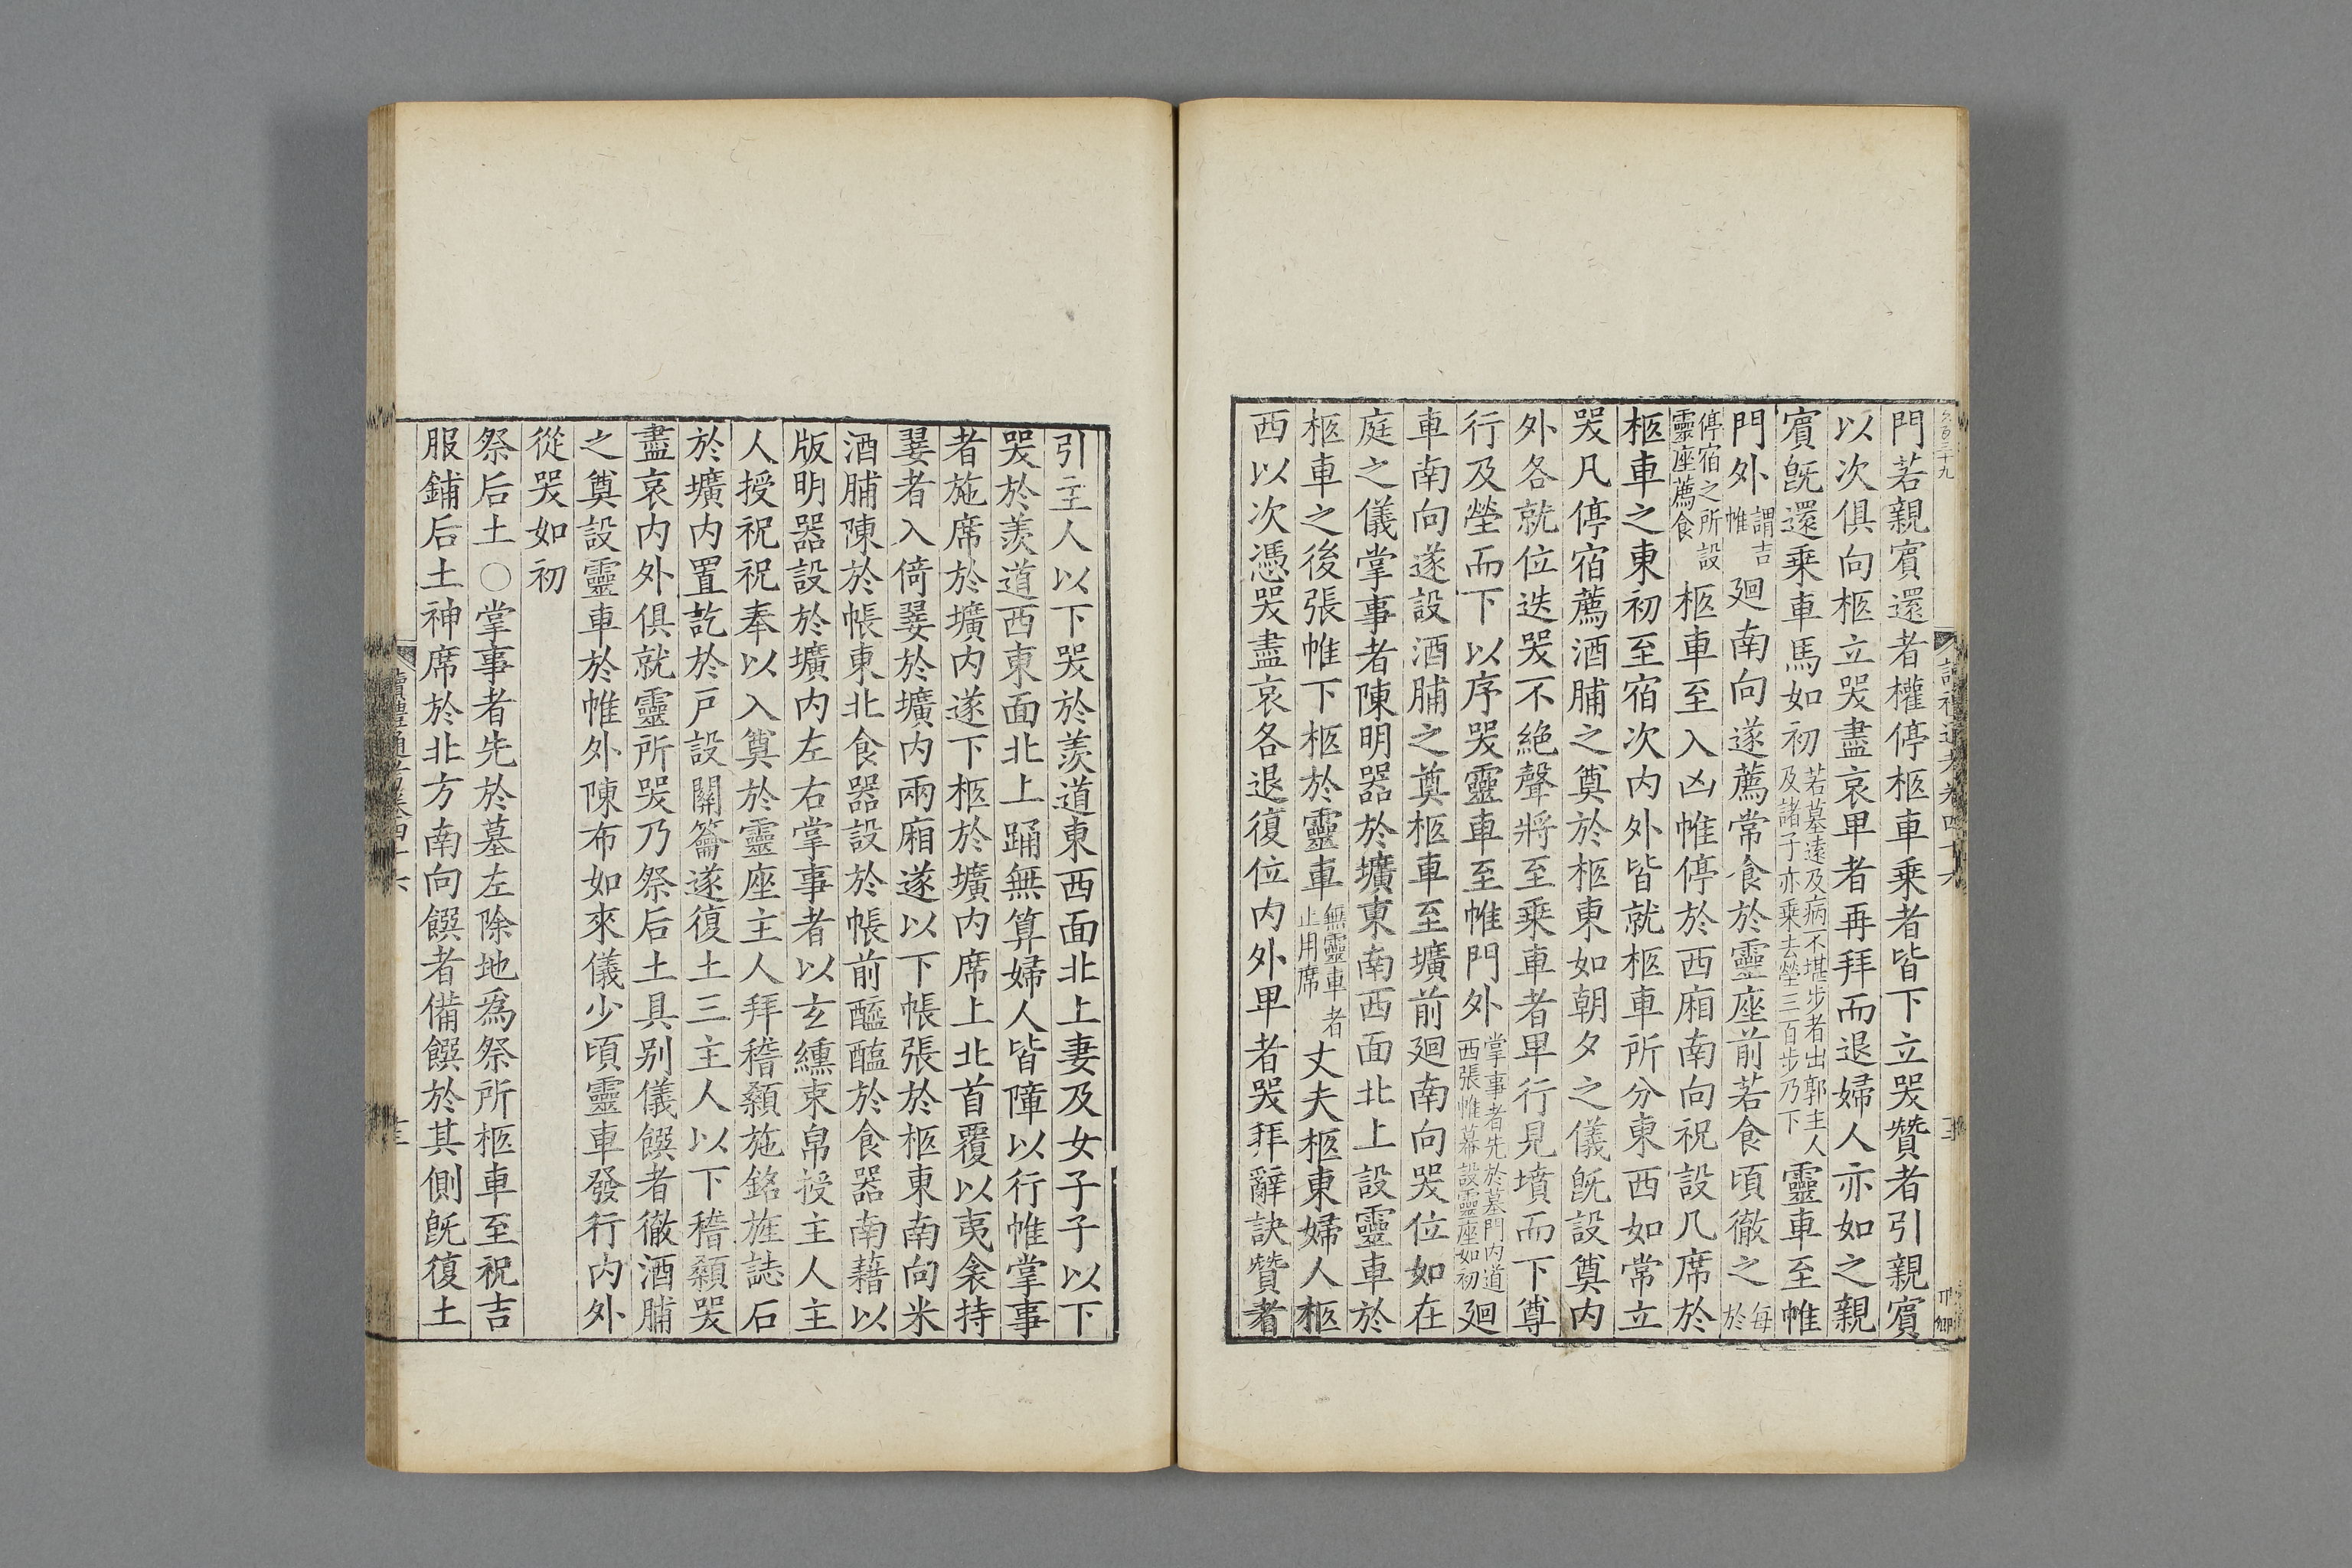 門若親賓還者權停柩車乗者皆下立哭贊者引親賓
以次俱向柩立哭盡哀卑者再拜而退婦人亦如之親
賓旣還乗車馬如初若墓遠及病不堪步者出郭主人及諸子亦乗去塋三百步乃下靈車至帷
門外謂吉帷廻南向遂薦常食於靈座前若食頃徹之每於
停宿之所設靈座薦食柩車至入凶帷停於西廂南向祝設几席於
柩車之東初至宿次内外皆就柩車所分東西如常立
哭凡停宿薦酒脯之奠於柩東如朝夕之儀旣設奠内
外各就位迭哭不絶聲將至乗車者卑行見墳而下尊
行及塋而下以序哭靈車至帷門外掌事者先於墓門内道西張帷幕設靈座如初廻
車南向遂設酒脯之奠柩車至壙前廻南向哭位如在
庭之儀掌事者陳明器於壙東南西面北上設靈車於
柩車之後張帷下柩於靈車無靈車者止用席丈夫柩東婦人柩
西以次憑哭盡哀各退復位内外卑者哭拜辭訣贊者
引主人以下哭於羨道東西面北上妻及女子子以下
哭於羨道西東面北上踊無算婦人皆障以行帷掌事
者施席於壙内遂下柩於壙内席上北首覆以夷衾持
翣者入倚翣於壙内兩廂遂以下帳張於柩東南向米
酒脯陳於帳東北食器設於帳前醯醢於食器南藉以
版明器設於壙内左右掌事者以玄纁束帛授主人主
人授祝祝奉以入奠於靈座主人拜稽顙施銘旌誌石
於壙内置訖於戸設關籥遂復土三主人以下稽顙哭
盡哀内外俱就靈所哭乃祭后土具别儀饌者徹酒脯
之奠設靈車於帷外陳布如來儀少頃靈車發行内外
從哭如初
祭后土〇掌事者先於墓左除地爲祭所柩車至祝吉
服鋪后土神席於北方南向饌者備饌於其側旣復土
讀禮通考卷四十六